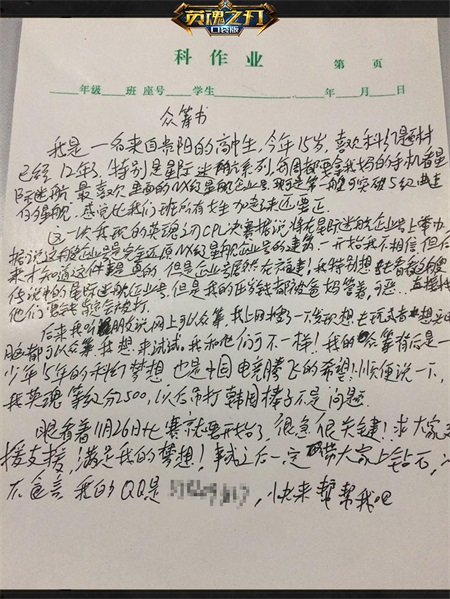 英魂之刃
口袋版
科作业
第 页
年级 班 座号 学生 年 月 日
众筹书
我是一名来自贵阳的高中生，今年15岁，喜欢科幻题材
已经12年了，特别是星际迷航系列，每周都要拿我妈的手机看星
际迷航，最喜欢里面的NX级星舰企业号，第一艘突破5级曲速
的星舰，感觉比我们班所有女生加起来还要正
这一次我玩的英魂之刃CPL决赛据说将在星际迷航企业号上举办，
据说这的企业号是完全还原NX级星舰企业号的建筑，一开始我不相信，但后
来才知道这件事是真的，但是企业号居然在福建！我特别想去看看
传说中的星际迷航企业号，但是我的压岁钱都被爸妈管着，
他们要钱肯定会被打
后来我听朋友说网上可以众筹，我上网搜了一下发现想去
都可以众筹，我想来试试，我和他们可不一样！我的众筹背后是一
少年15年的科幻梦想，也是中国电竞腾飞的希望！顺便说一下，
我英魂等级分2500，以后吊打韩国棒子不是问题
眼看着11月26日比赛就要开始了，很急很关键！求大家支
援支援，满足我的梦想！事成之后一定带大家上钻石，
不食言，我的QQ是 ，快来帮帮我吧